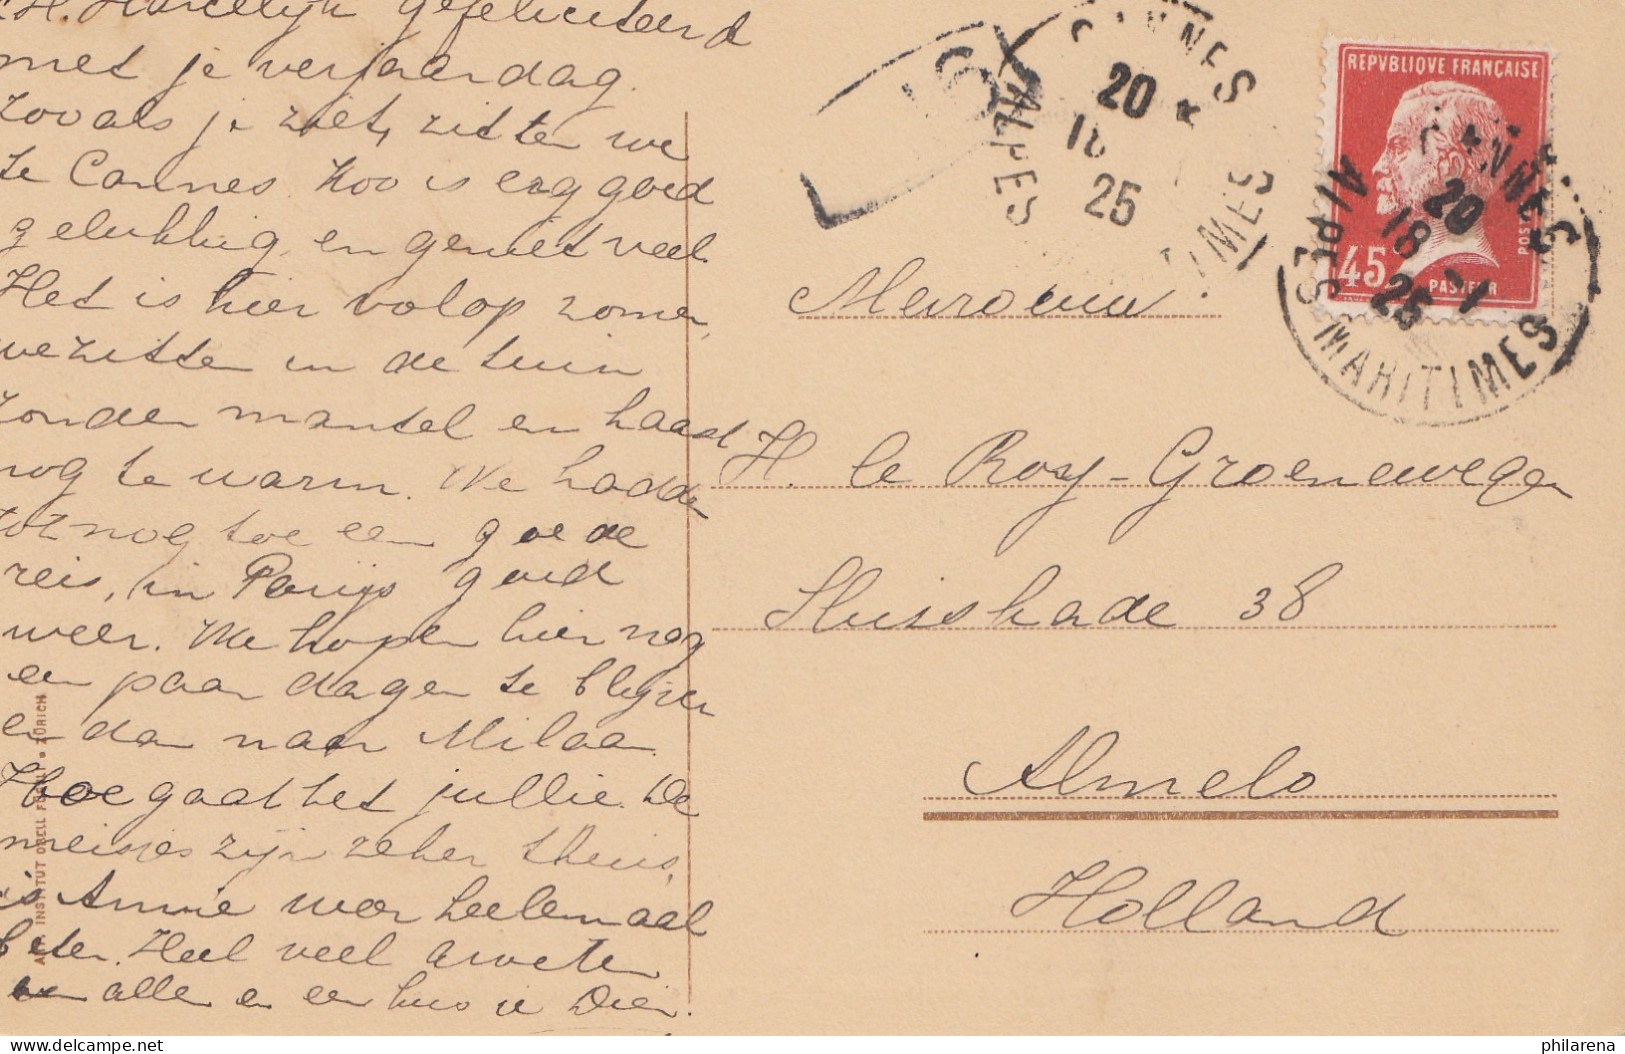 Marcelijn gefeliciteerd
met je verjaardag.
Zooals je ziet, zitten we
te Cannes. Hoo is erg goed
gelukkig en geniet veel.
Het is hier volop zomer,
we zitten in de tuin
zonder mantel en haast
nog te warm. We hadden
tot nog toe een goede
reis, in Parijs goed
weer. We hopen hier nog
een paar dagen te blijven
en dan naar Milaan.
Hoe gaat het jullie. De
meisjes zijn zeker thuis,
is Annie weer heelemaal
beter. Heel veel groeten
aan allen en een kus v. Dien.
INSTITUT ORELL FÜSSLI • ZÜRICH
CANNES
20
18
25
ALPES
MARITIMES
REPVBLIQVE FRANÇAISE
45
PASTEUR
POSTES
CANNES
20
18-1
25
ALPES MARITIMES
Mevrouw
H. le Roy-Groenewegen
Sluiskade 38
Almelo
Holland
delcampe.net
philarena